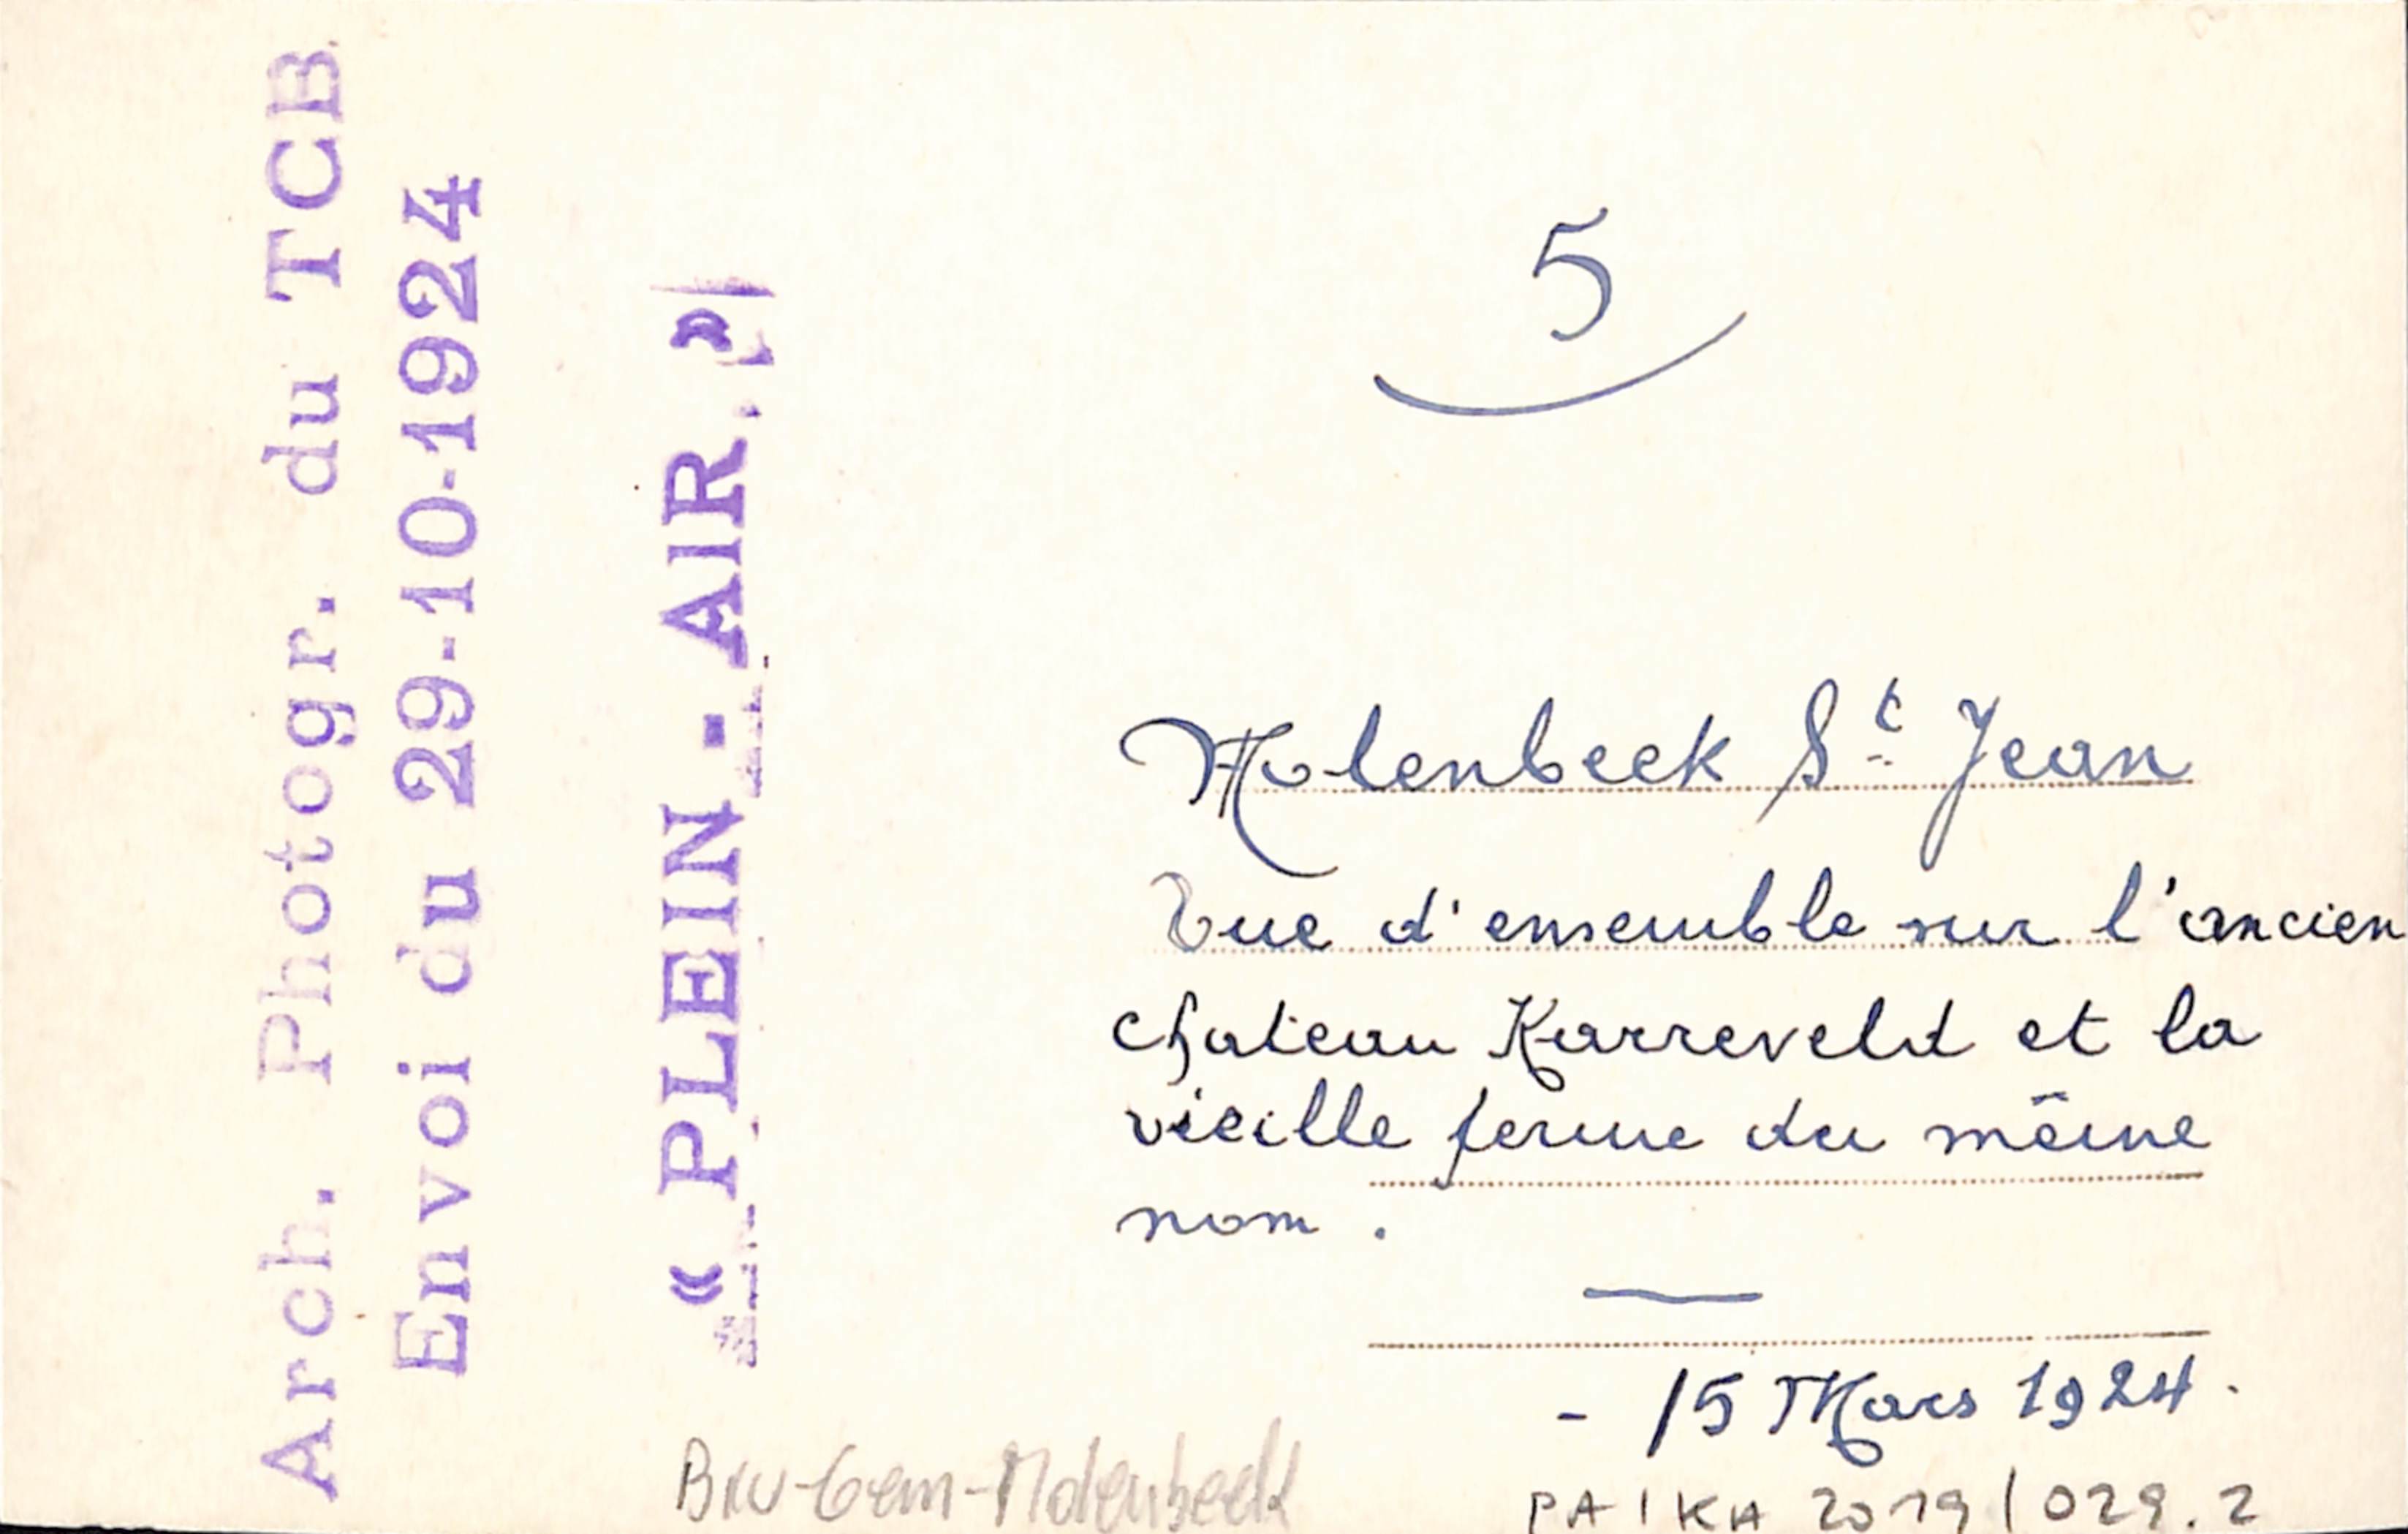 Arch. Photogr. du TCB
Envoi du 29-10-1924
« PLEIN - AIR. »
5
Molenbeek St Jean
Vue d'ensemble sur l'ancien
chateau Karreveld et la
vieille ferme du même
nom .
- 15 Mars 1924.
Bru-Gem-Molenbeek
PAIKA 2019/029.2